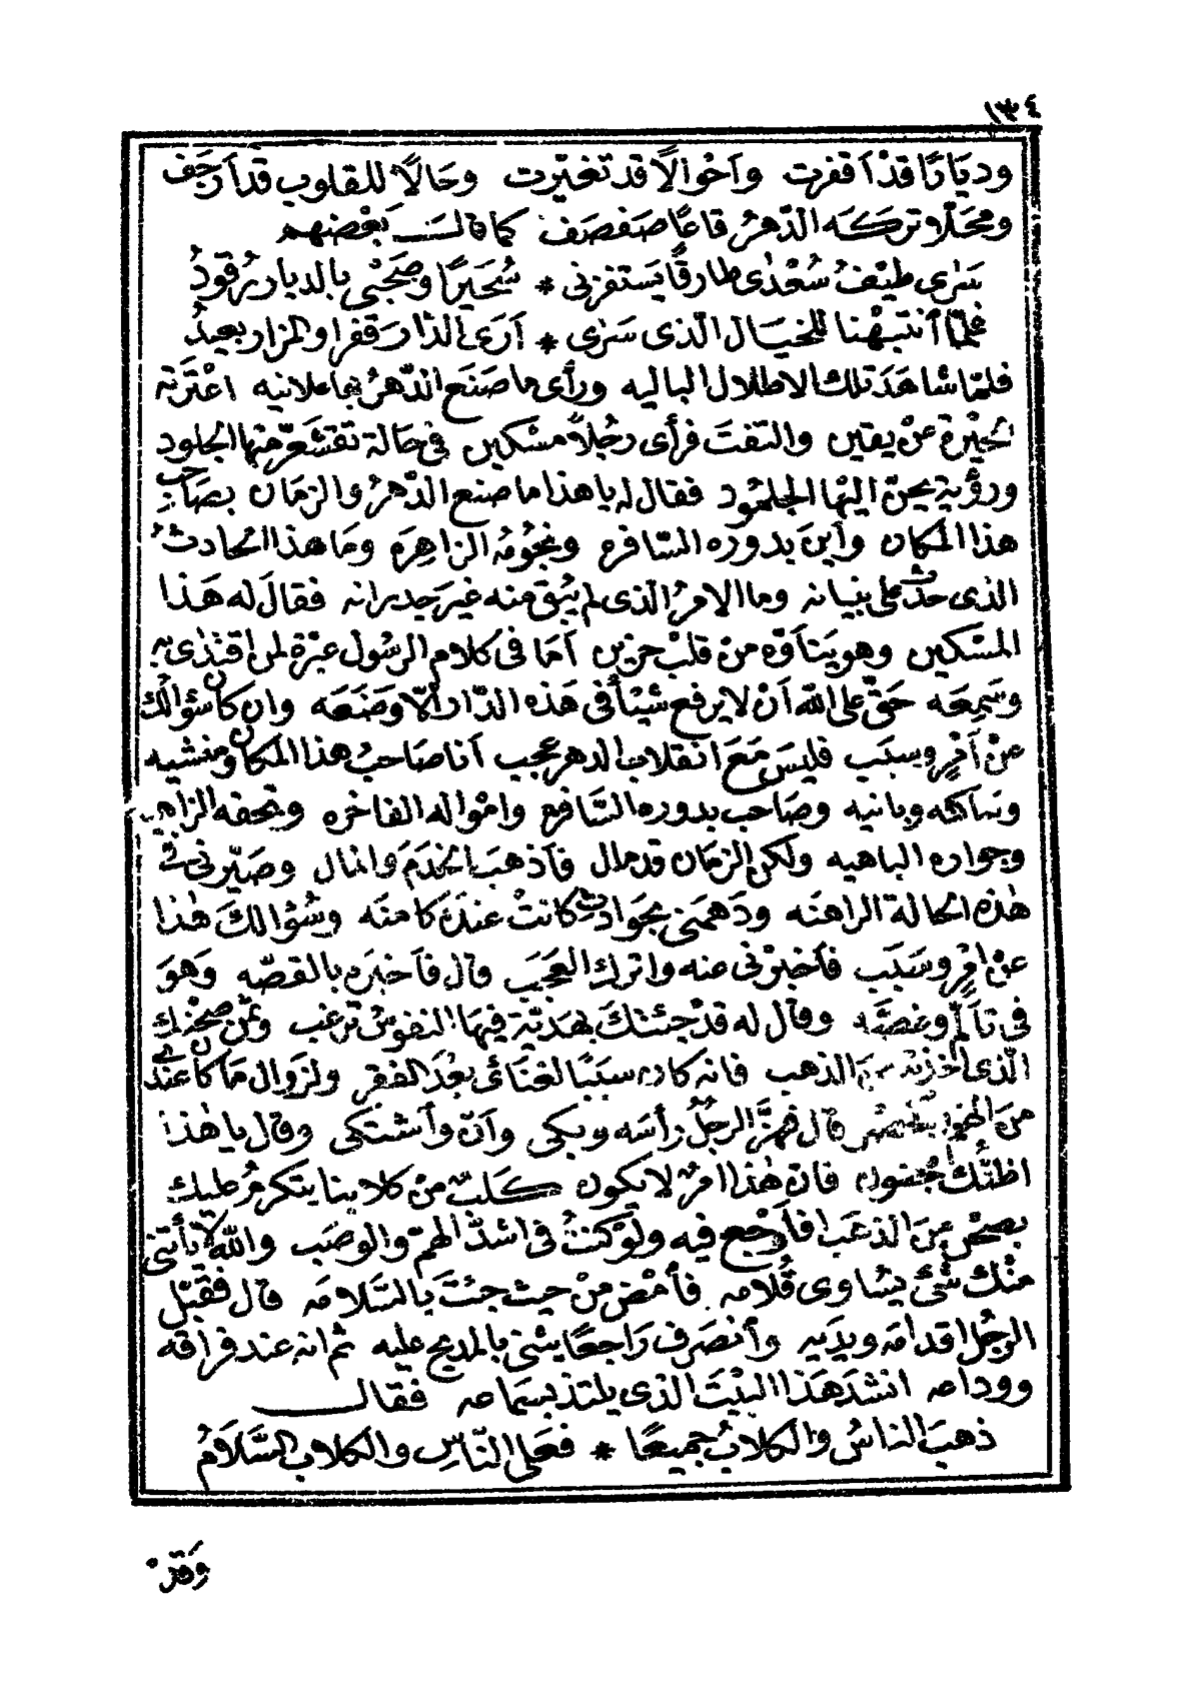 ١٣٤
وديَارًا قدْ أقفرت وأحْوالًا قد تغيّرت وحَالًا للقلوب قد أرجَف
ومحَلّا تركَه الدّهرُ قاعًا صَفصَف كما قالـــ بَعْضهم
سَرٰى طيْفُ سُعْدٰى طارقًا يَستفزنى * سُحَيرًا وصَحْبى بالديار رُقودُ
فلمّا أنتبهْنا للخيَال الّذى سَرٰى * أرَى الدَارَ قفرا والمزار بعيدُ
فلمّا شاهَدَ تلك الاطلال الباليه ورأى ما صَنَع الدّهرُ بها علانيه اعْتَرَته
الحيْرة عنْ يقين والتفتَ فرأى رجُلاً مسْكين فى حَالة تقشعرّ منها الجلود
ورؤية يحنّ اليْها الجلمُود فقال له يا هذا ما صنع الدّهرُ والزمَان بصَاحب
هذا المكان وأينَ بدوره السّافره ونجُومُه الزاهِرَه ومَا هذا الحادثُ
الذى حدث على بنيانه وما الامرُ الّذى لم يُبْق منه غيرَ جدرانه فقالَ له هَذا
المسْكين وهو يَتأوّه منْ قلبٍ حزين أمَا فى كلام الرسُول عبْرة لمن اقتدٰى به
وسَمِعَه حَقّ على الله أنْ لا يرفع شيْأ فى هَذه الدّار الّا وضَعَه وان كان سُؤالك
عنْ أمْرٍ وسبَب فليسَ مَعَ انقلاب الدهر عجب أنا صَاحبُ هذا المكان ومنشيه
وسَاكنه وبانيه وصَاحب بدوره السّافره وامْواله الفاخره وتحفه الزاهيه
وجواره الباهيه ولكن الزمَان قد مال فأذهبَ الخدَمَ والمال وصَيّرنى فى
هٰذه الحالة الراهنَه ودَهمَنى بحَوادث كانتْ عندَه كامنَه وسُؤالكَ هٰذا
عنْ امْرٍ وسَبَب فأخبرْنى عنه واترك العجَب قال فأخبَره بالقصّه وَهوَ
فى تألّم وغصَّه وقال له قدْ جئتكَ بهَديّة فيهَا النفوسُ ترغب وثمن صحنك
الّذى أخذتهُ منَ الذهب فانه كان سببًا لغنائى بعْدَ الفقر ولزوال مَا كان عندى
منَ قال فهزّ الرجُلُ رأسَه وبكى وأنّ وأشتكى وقال يا هٰذا
اظنّك مجْنون فان هٰذا امرٌ لا يكون كلبٌ منْ كلابنا يتكرمُ عليك
بصحْن منَ الذهَب افأرْجع فيه ولوْ كنتُ فى اشدّ الهمّ والوصَب والله لا يأتنى
منْك شئ يسَاوى قُلامه فأمْضِ منْ حيث جئتَ بالسَّلامَه قال فقبّل
الرجُل اقدامَه ويدَيه وأنصَرف رَاجعًا يثنى بالمدح عليه ثم انه عند فراقه
ووداعه انشدَ هَذا البيْتَ الذى يلتذ بسَماعه فقالـــ
ذهبَ الناسُ والكلابُ جميعًا * فعَلى النّاسِ والكلاب السَّلَامُ
وَقدْ